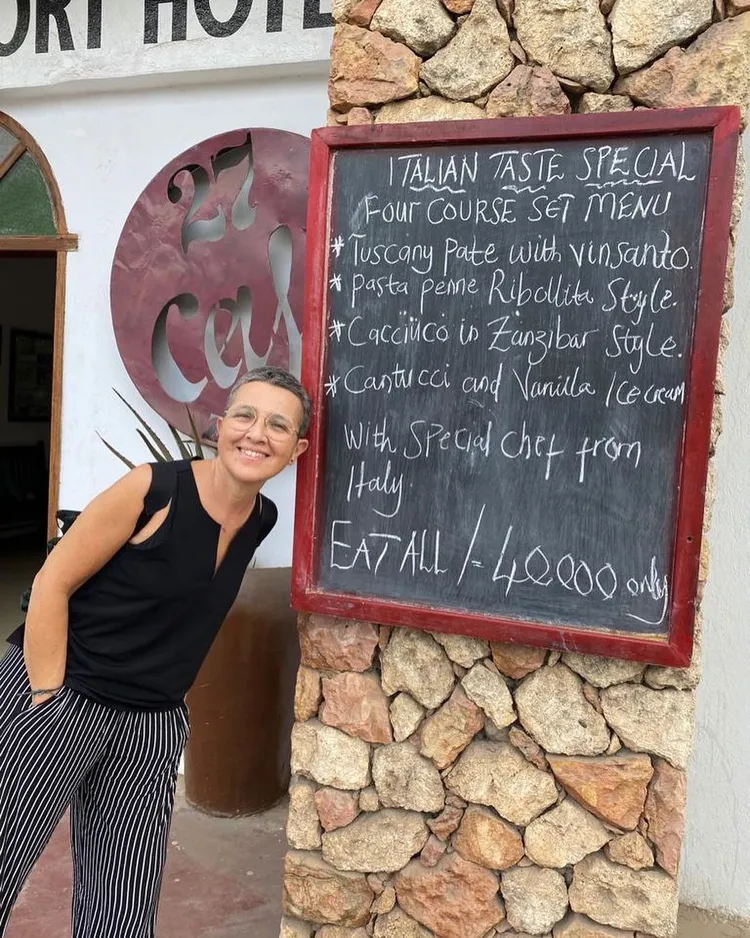 ORT HOTE
27
caf
ITALIAN TASTE SPECIAL
FOUR COURSE SET MENU
* Tuscany Pate with vinsanto.
* Pasta penne Ribollita Style.
* Cacciuco in Zanzibar Style.
* Cantucci and Vanilla Ice cream
With Special Chef from
Italy.
EAT ALL /- 40000 only